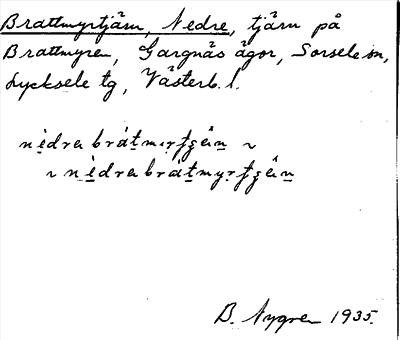 Brattmyrtjärn, Nedre, tjärn på
Brattmyren, Gargnäs ägor, Sorsele sn,
Lycksele tg, Västerb. l.
nèdra brát̲myrţʒän̲ ~
~ nèdra brát̲myrţʒän̲
B. Nygren 1935.